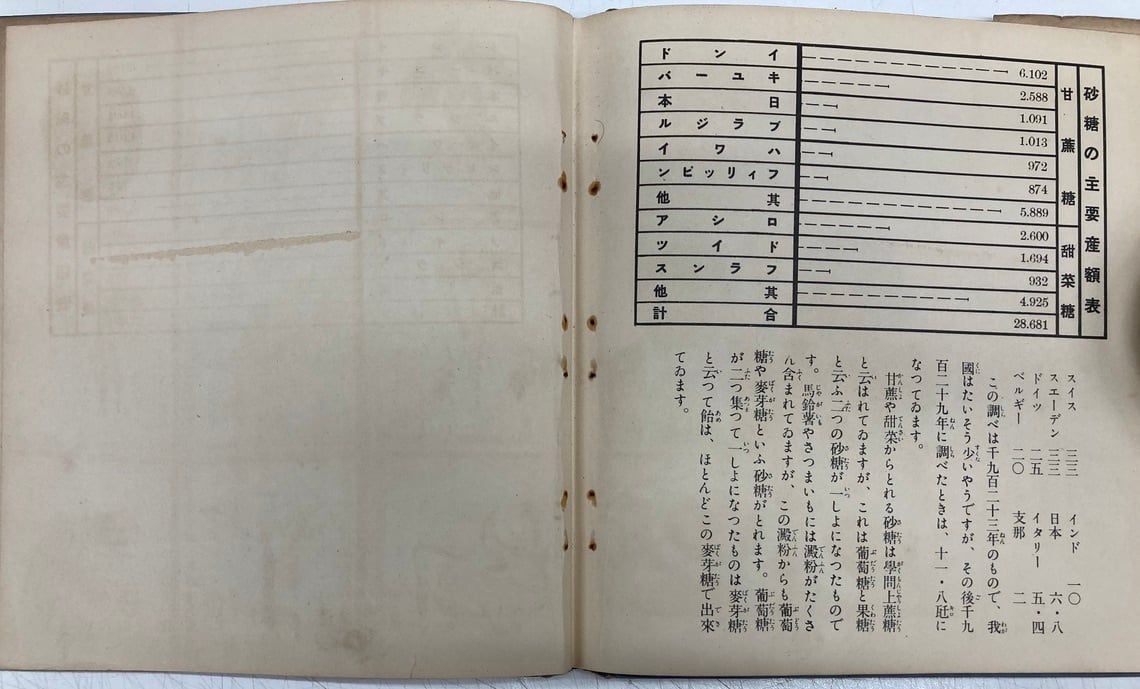 砂糖の主要産額表
甘蔗糖
インド 6.102
キューバ 2.588
日本 1.091
ブラジル 1.013
ハワイ 972
フィリッピン 874
其他 5.889
甜菜糖
ロシア 2.600
ドイツ 1.694
フランス 932
其他 4.925
合計 28.681
スイス 三三 インド 一〇
スエーデン 三三 日本 六・八
ドイツ 二五 イタリー 五・四
ベルギー 二〇 支那 二
この調べは千九百二十三年のもので、我
國はたいそう少いやうですが、その後千九
百二十九年に調べたときは、十一・八瓩に
なつてゐます。
甘蔗や甜菜からとれる砂糖は學問上蔗糖
と云はれてゐますが、これは葡萄糖と果糖
と云ふ二つの砂糖が一しよになつたもので
す。馬鈴薯やさつまいもには澱粉がたくさ
ん含まれてゐますが、この澱粉からも葡萄
糖や麥芽糖といふ砂糖がとれます。葡萄糖
が二つ集つて一しよになつたものは麥芽糖
と云つて飴は、ほとんどこの麥芽糖で出來
てゐます。